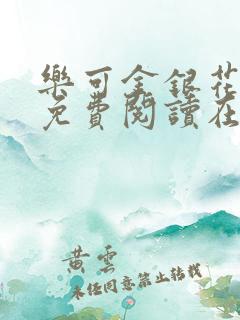 樂可金銀花
免費閱讀在
黄雲
未经同意禁止转载